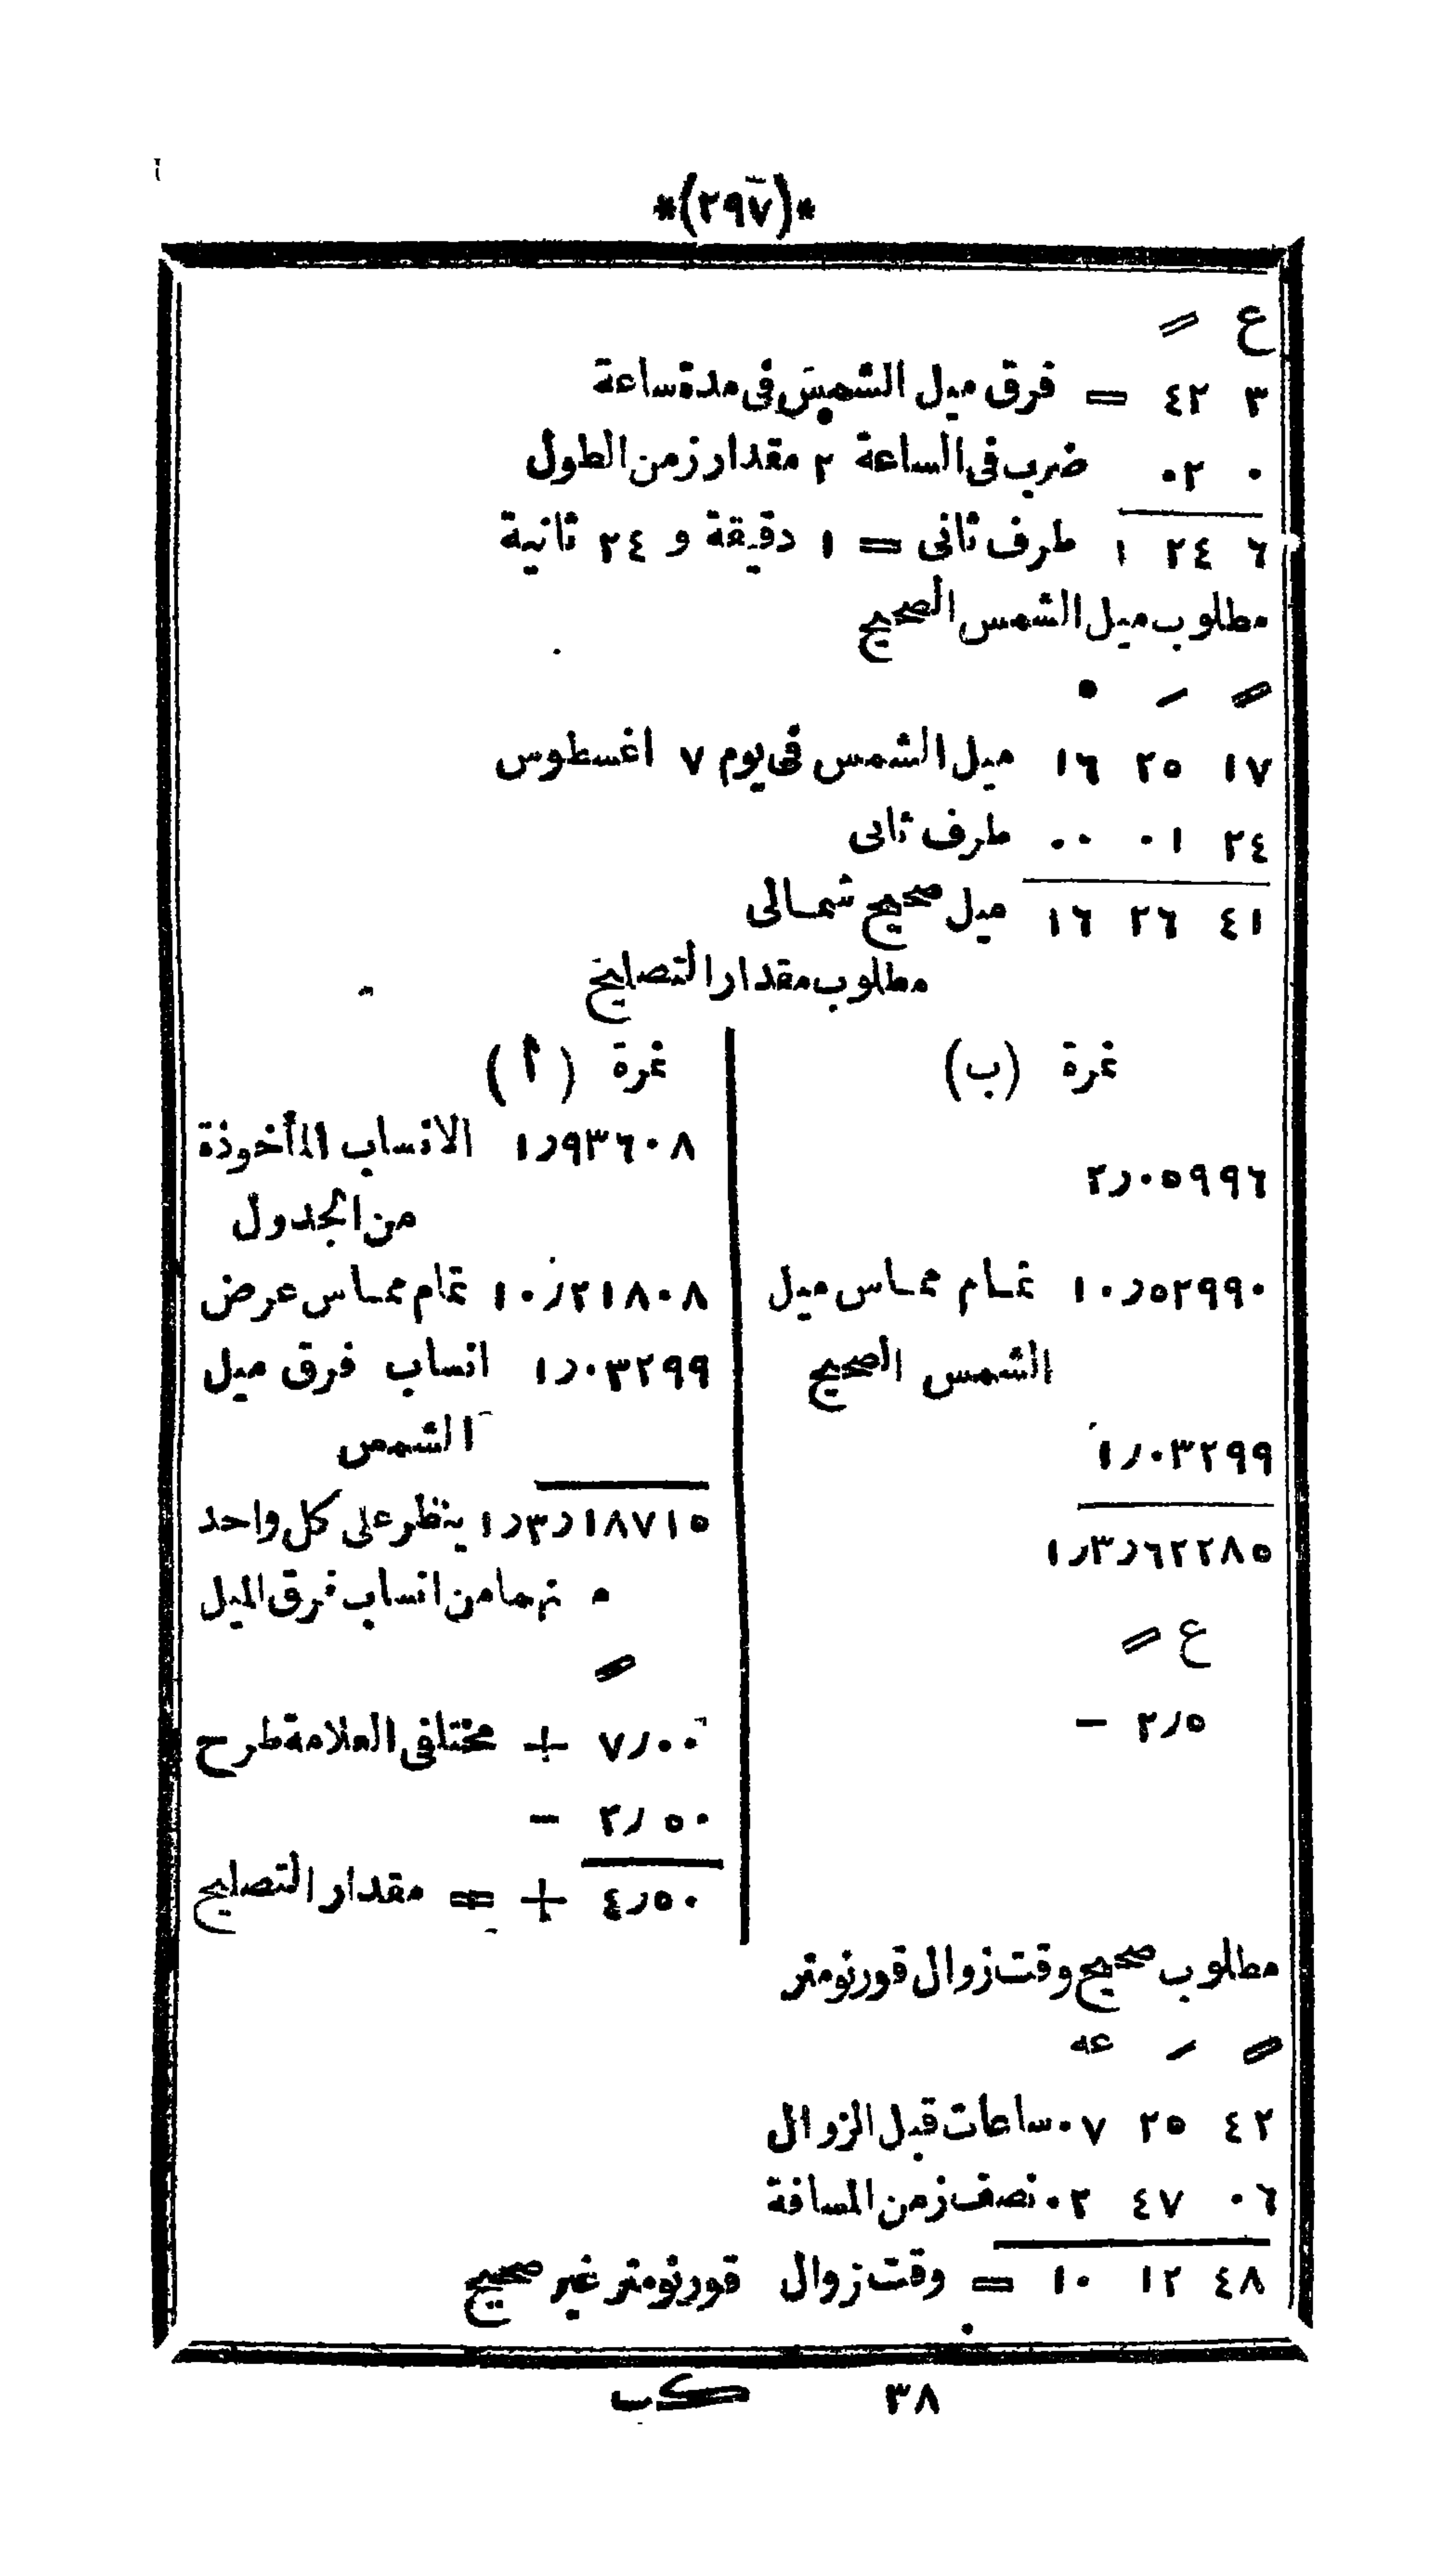 *(٢٩٧)*
ع ⸗
٣ ٤٢ = فرق ميل الشمس فى مدة ساعة
٠ ٠٢ ضرب فى الساعة ٢ مقدار زمن الطول
٦ ٢٤ ١ طرف ثانى = ١ دقيقة و ٢٤ ثانية
مطلوب ميل الشمس الصحيح
١٧ ٢٥ ١٦ ميل الشمس فى يوم ٧ اغسطوس
٢٤ ٠١ ٠٠ طرف ثانى
٤١ ٢٦ ١٦ ميل صحيح شمالى
مطلوب مقدار التصليح
نمرة (ب)
٢٫٠٥٩٩٦
١٠٫٥٢٩٩٠ تمام مماس ميل
الشمس الصحيح
١٫٠٣٢٩٩
١٫٣٫٦٢٢٨٥
ع ⸗
٢٫٥ −
نمرة (أ)
١٫٩٣٦٠٨ الانساب المأخوذة
من الجدول
١٠٫٢١٨٠٨ تمام مماس عرض
١٫٠٣٢٩٩ انساب فرق ميل
الشمس
١٫٣٫١٨٧١٥ ينظر على كل واحد
منهما من انساب فرق الميل
٧٫٠٠ + مختلفى العلامة طرح
٢٫٥٠ −
٤٫٥٠ + = مقدار التصليح
مطلوب صحيح وقت زوال قورنومتر
عه
٤٢ ٢٥ ٠٧ ساعات قبل الزوال
٠٦ ٤٧ ٠٢ نصف زمن المسافة
٤٨ ١٢ ١٠ = وقت زوال قورنومتر غير صحيح
٣٨ كب